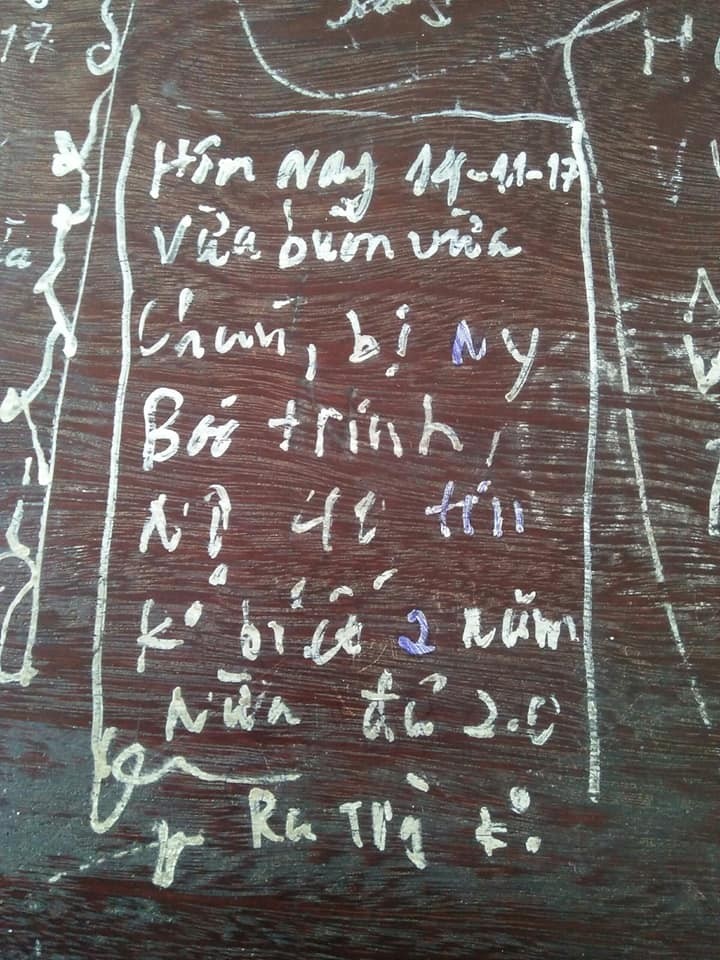 17
Hôm nay 14-11-17
Vừa buồn vừa
chán, bị Ny
Bồi trinh,
Nợ tín
K° biết 2 năm
Nữa đủ 2.0
Ra Trg k°.